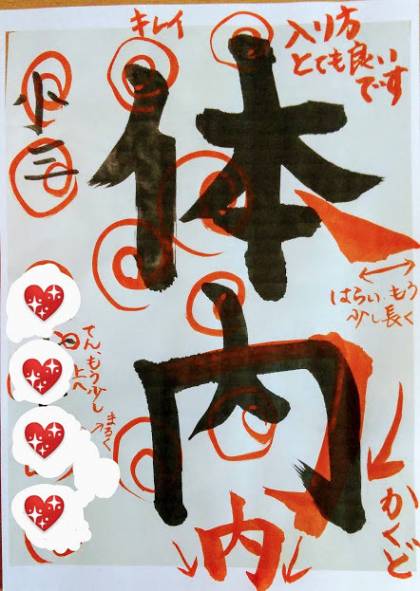 キレイ
入り方
とても良い
です
体内
小三
はらい、もう
少し長く
てん、もう少し
上へ
まるく
かくど
内